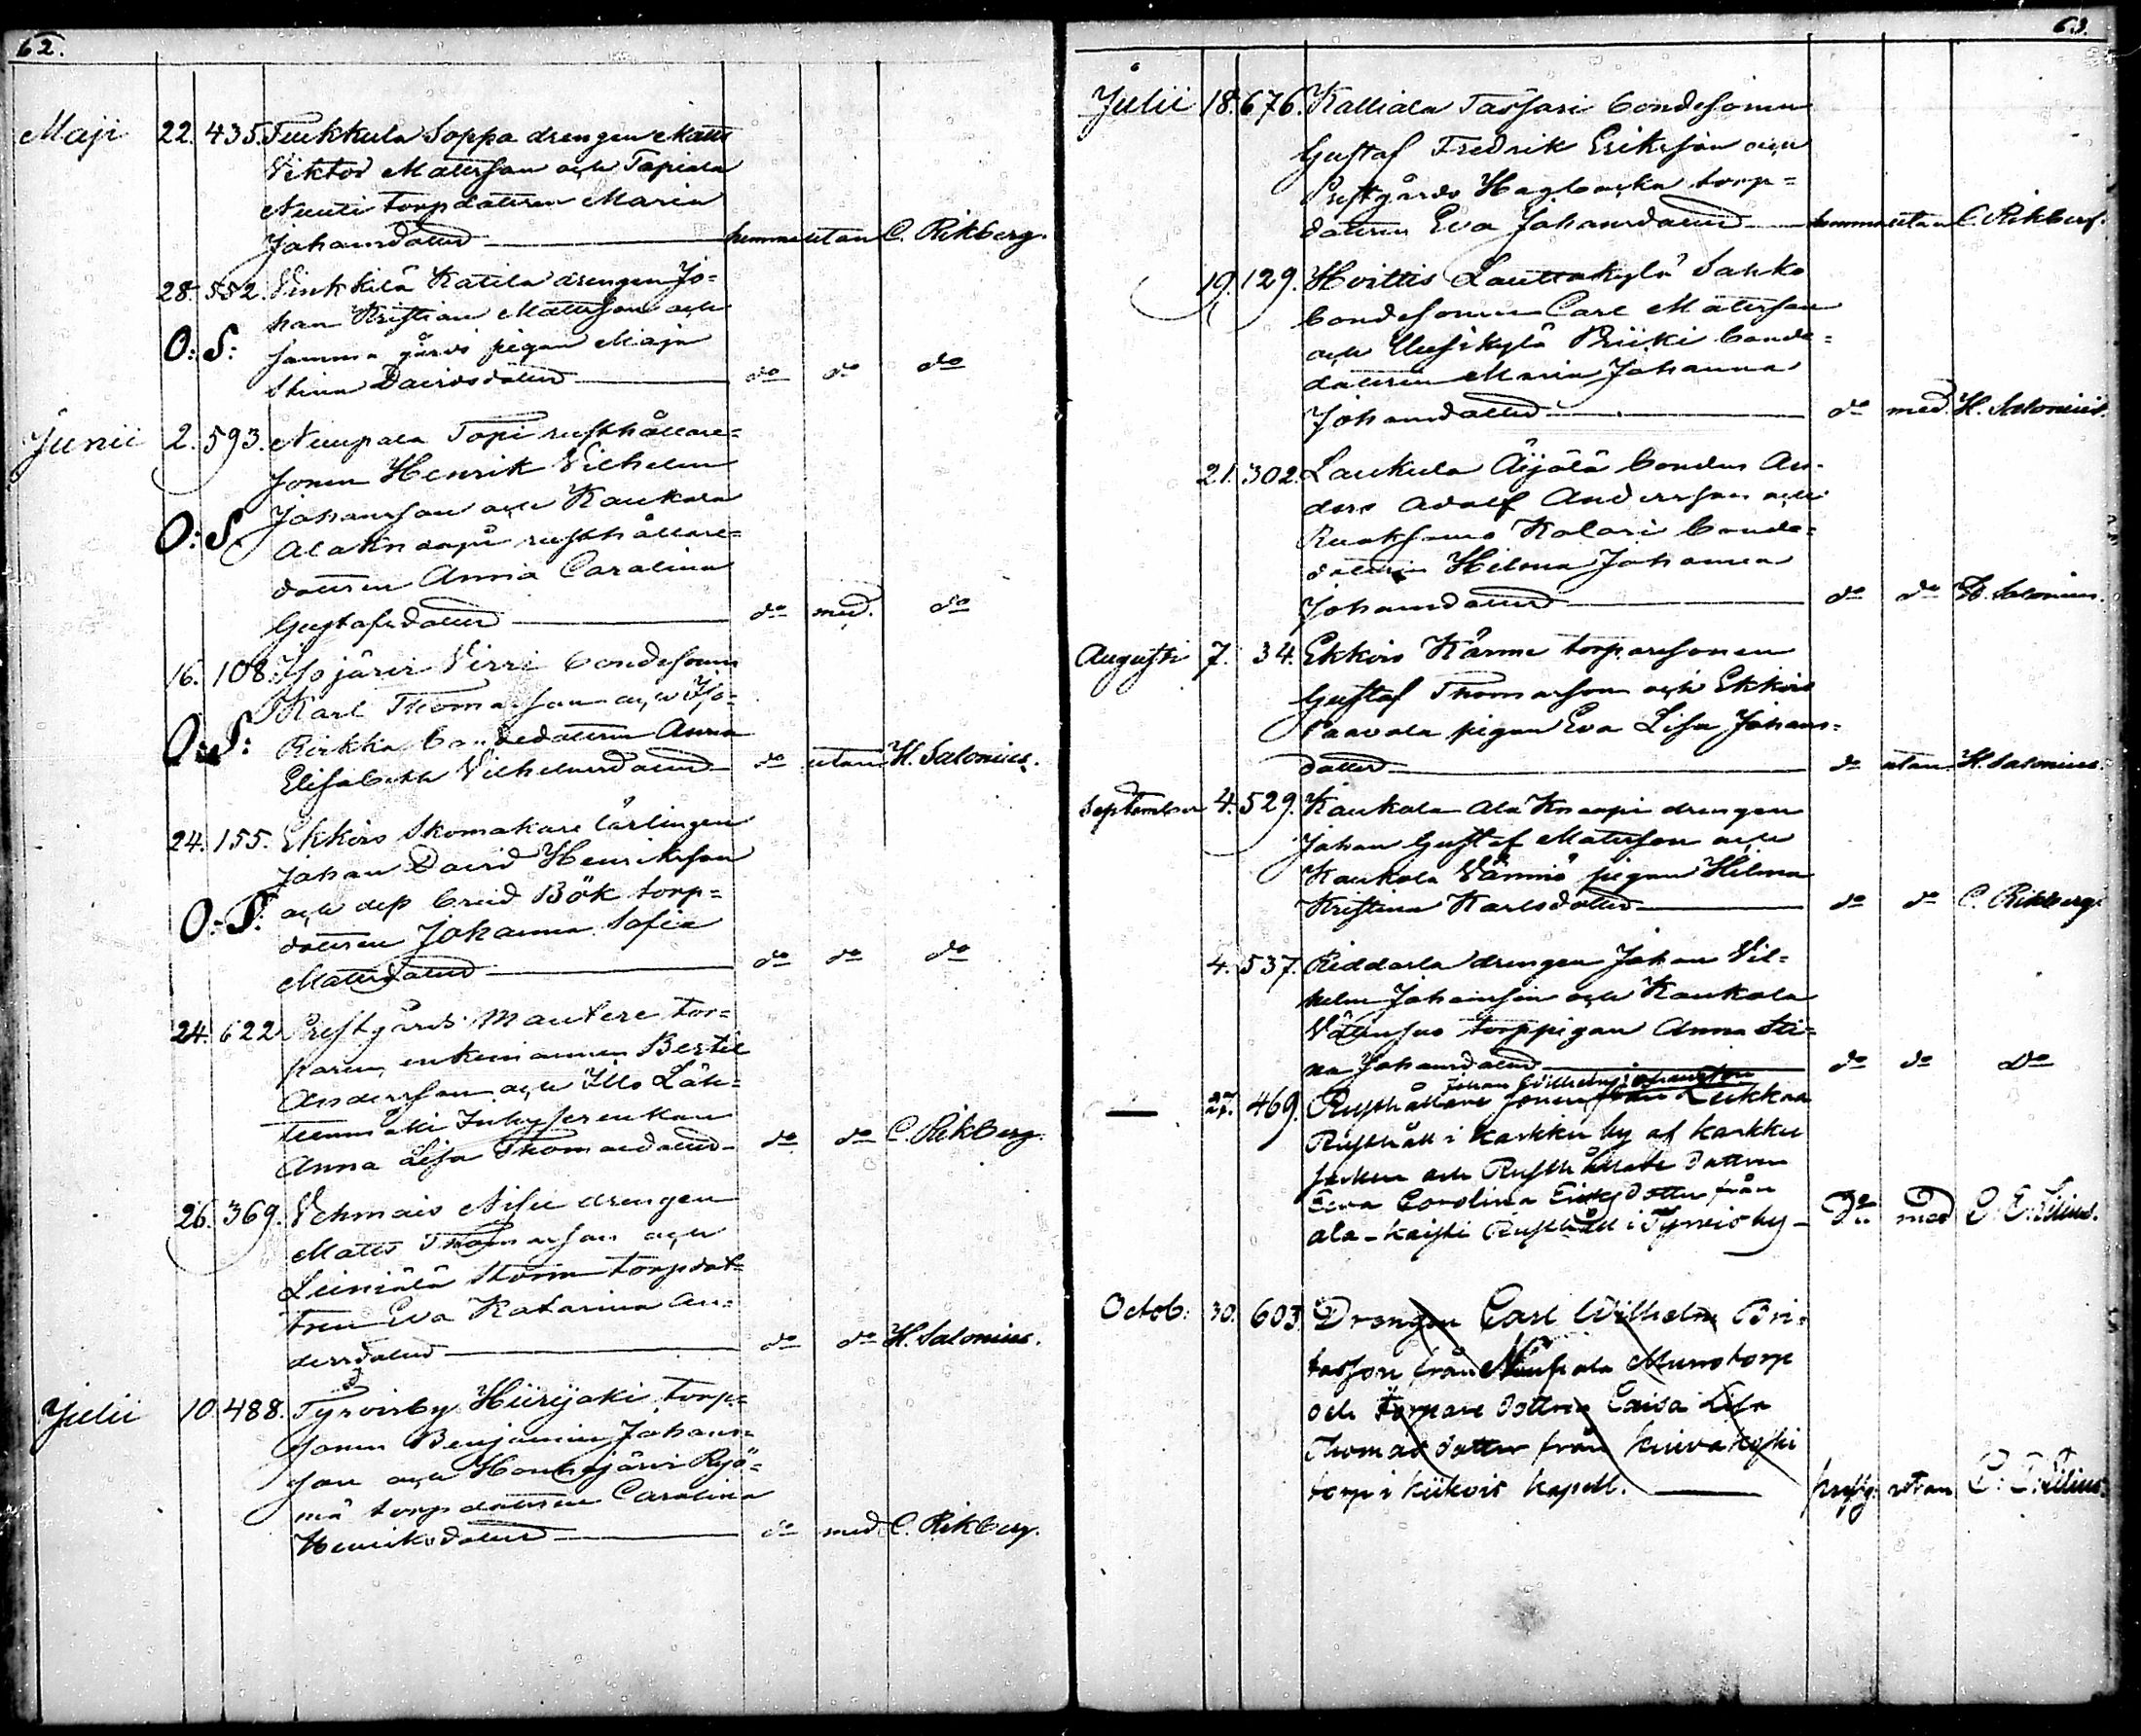 62.
Maji 22. 435. Tuukkula Soppa drengen Matts
Viktor Mattsson och Tapiala
Nuuti torpdottren Maria
Johansdotter hemma utan C. Rikberg.
28. 552. Vinkkilä Katila drengen Jo=
han Kristian Mattsson och
O: S: samma gårds pigan Maja
Stina Davidsdotter do do do
Junii 2. 593. Nuupala Topi rusthållare=
sonen Henrik Vilhelm
Johansson och Kaukola
O: S. Ala Knaapi rusthållare=
dottren Anna Carolina
Gustafsdotter do med. do
16. 108. Isojärvi Virri bondesonen
Karl Thomasson och Iso=
O: S: Rirkko bondedottren Anna
Elisabeth Vilhelmsdotter do utan H. Salonius.
24. 155. Ekkois Skomakare lärlingen
Johan David Henriksson
och dess brud Bök torp=
O: S: dottren Johanna Sofia
Mattsdotter do do do
24. 622 Prestgårds Mautere tor=
paren, enkemannen Bertil
Andersson och Illo Läh=
teenmäki Inhyses enkan
Anna Lisa Thomasdotter do do C. Rikberg.
26. 369. Vehmais Nisu drengen
Matts Thomasson och
Liiniälä Storm torpdot=
tren Eva Katarina An=
dersdotter do do H. Salonius.
Julii 10. 488. Tyrvisby Hiirijoki torp=
sonen Benjamin Johans=
son och Houhajärvi Ryö=
mä torpdottren Carolina
Henriksdotter do med. C. Rikberg.
63.
Julii 18. 676. Kalliala Tassari bondesonen
Gustaf Fredrik Eriksson och
Prestgårds Hagbacka torp=
dottren Eva Johansdotter hemma utan C. Rikberg.
19. 129. Hvittis Lauttakylä Sahko
bondesonen Carl Mattsson
och Uusikylä Priiki bonde=
dottren Maria Johanna
Johansdotter do med. H. Salonius.
21. 302. Laukula Äijälä bonden An=
ders Adolf Andersson och
Ruoksamo Kalari bonde=
dottren Hilma Johanna
Johansdotter do do H. Salonius.
Augusti 7. 34. Ekkois Kärme torparesonen
Gustaf Thomasson och Ekkois
Paavola pigan Eva Lisa Johans=
dotter do utan H. Salonius.
September 4. 529. Kaukola Ala Knaapi drengen
Johan Gustaf Mattsson och
Kaukola Vänniö pigan Hilma
Kristina Karlsdotter do do C. Rikberg.
4. 537. Riddarla drengen Johan Vil=
helm Johansson och Kaukola
torppigan Anna Sti=
na Johansdotter do do Do
Johan Willhelm Johansson
— 27. 469. Rusthållare sonen från Luikkaa
Rusthåll i Karkku by af Karkku
socken och Rusthållare dottren
Eeva Carolina Eriksdotter från
ala-Kaisti Rusthåll i Tyrvis by — Do med C. E. Lilius.
Octob: 30. 603. Drengen Carl Wilhelm Bri=
tasson från Nuupala Murro torp
och Torpare dottren Eeva Lisa
Thomasdotter från Kuivakoski
torp i Kiikois Kapell. prestg. utan C. E. Lilius.